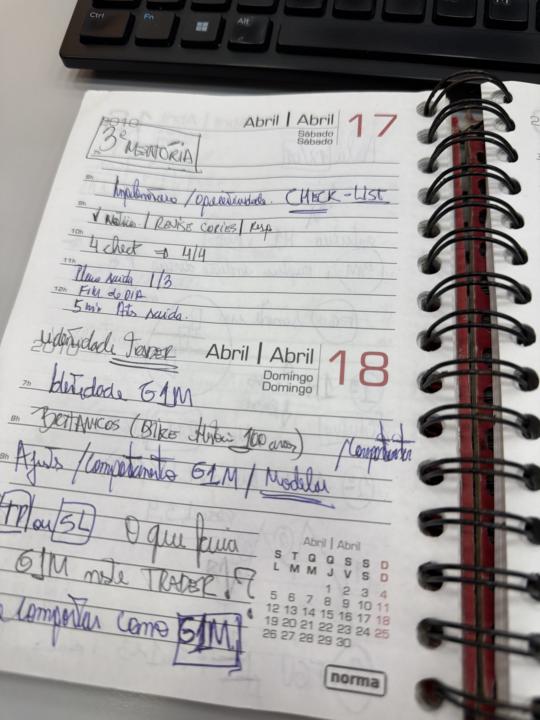 Ctrl Fn Alt
2010
Abril | Abril 17
Sábado
Sábado
3ª MEMÓRIA
8h CHECK-LIST
9h √ Notícia / REVISE CORIES /
10h 4 check ⇒ 4/4
11h Plano saída 1/3
12h FIM de DIA
5 min saída.
2010
identidade TRADER
Abril | Abril 18
Domingo
Domingo
7h Identidade G1M
8h BRITÂNICOS (BIKE 100 anos)
9h Ajuste / Comportamento G1M / Modelar
TP ou SL O que faria
G1M neste TRADER.?
comportar como G1M
Abril | Abril
S T Q Q S S D
L M M J V S D
1 2 3 4
5 6 7 8 9 10 11
12 13 14 15 16 17 18
19 20 21 22 23 24 25
26 27 28 29 30
norma